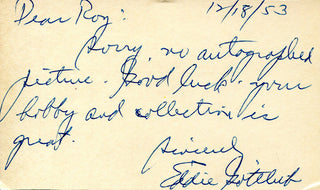 Dear Roy: 12/18/53
Sorry, no autographed
picture. Good luck - your
hobby and collection is
great.
Sincerely
Eddie Gottlieb